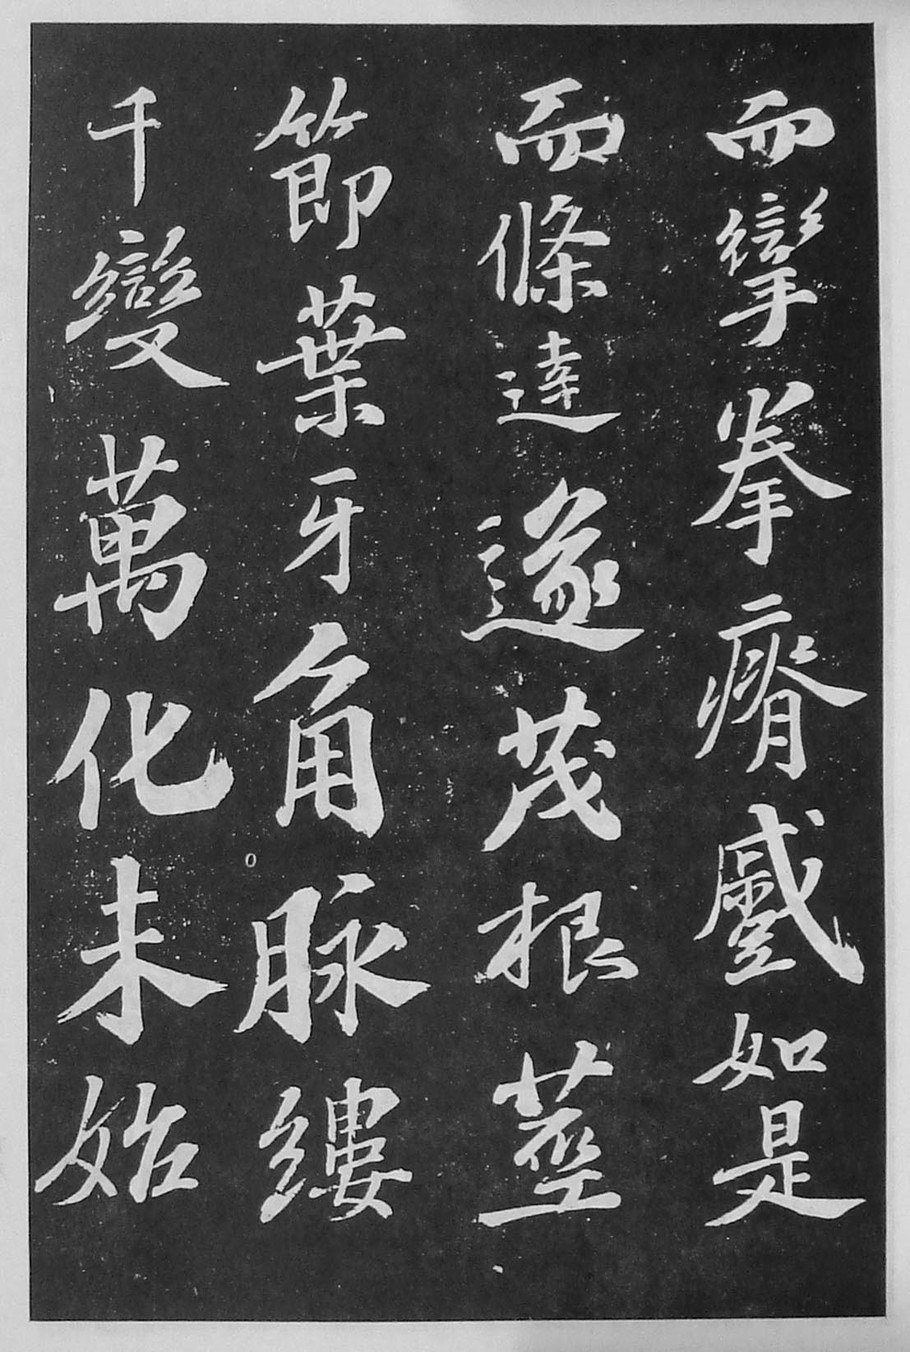 而攣拳瘠蹙如是
而條達遂茂根莖
節葉牙角脉縷
千變萬化未始